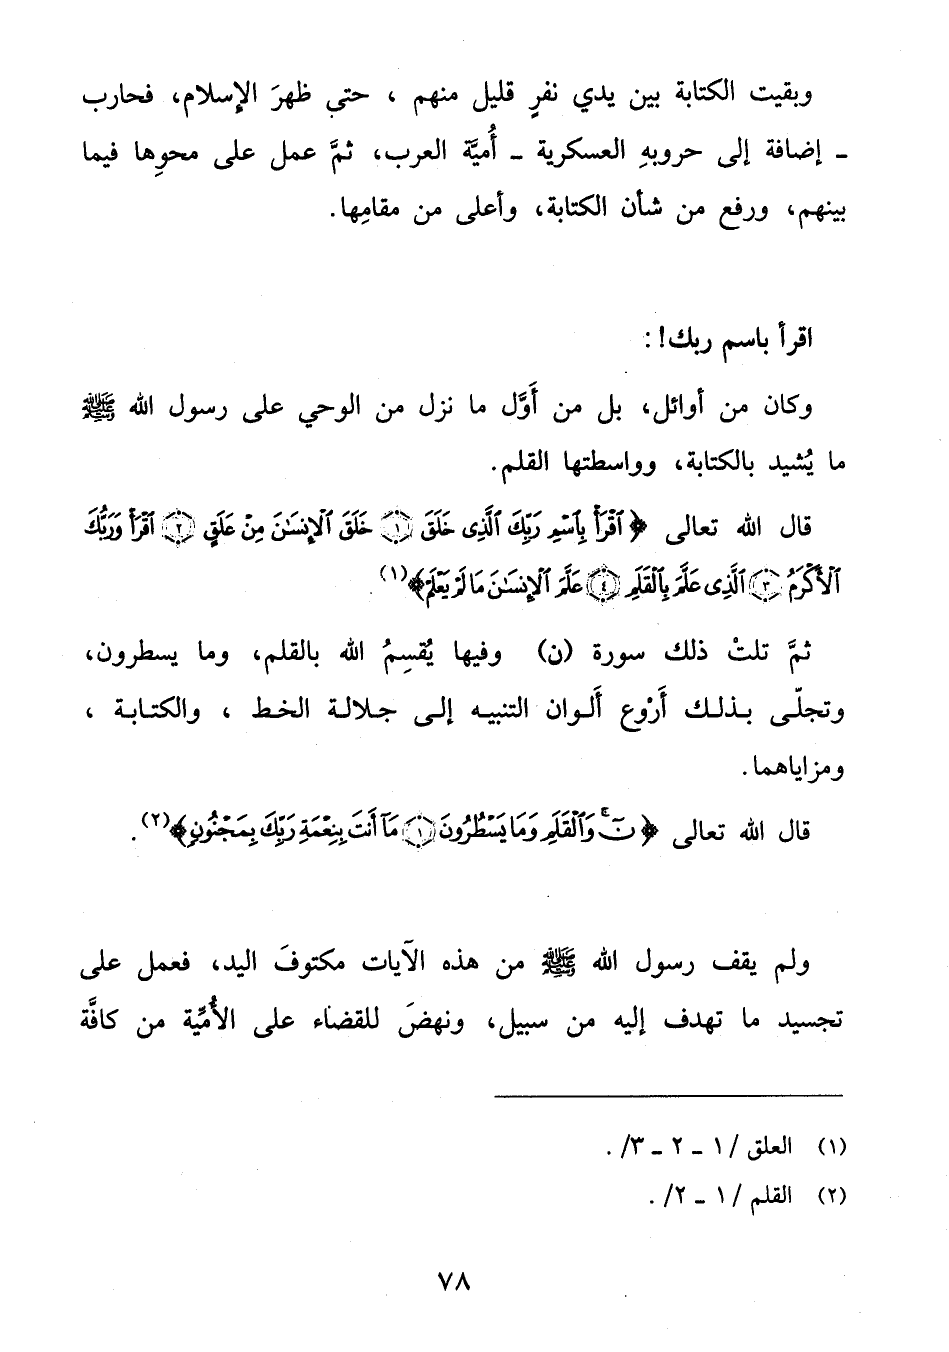 وبقيت الكتابة بين يدي نفرٍ قليل منهم ، حتي ظهرَ الإسلام، فحارب
ـ إضافة إلى حروبهِ العسكرية ـ أُميَّة العرب، ثمَّ عمل على محوِها فيما
بينهم، ورفع من شأن الكتابة، وأعلى من مقامِها.
اقرأ باسم ربك! :
وكان من أوائل، بل من أَوَّل ما نزل من الوحي على رسول الله ﷺ
ما يُشيد بالكتابة، وواسطتها القلم.
قال الله تعالى ﴿ ٱقْرَأْ بِٱسْمِ رَبِّكَ ٱلَّذِى خَلَقَ ۝١ خَلَقَ ٱلْإِنسَٰنَ مِنْ عَلَقٍ ۝٢ ٱقْرَأْ وَرَبُّكَ
ٱلْأَكْرَمُ ۝٣ ٱلَّذِى عَلَّمَ بِٱلْقَلَمِ ۝٤ عَلَّمَ ٱلْإِنسَٰنَ مَا لَمْ يَعْلَمْ﴾(١) .
ثمَّ تلتْ ذلك سورة (ن) وفيها يُقسِمُ الله بالقلم، وما يسطرون،
وتجلّى بذلك أَرْوع أَلوان التنبيه إلى جلالة الخط ، والكتابة ،
ومزاياهما.
قال الله تعالى ﴿ نٓ ۚ وَٱلْقَلَمِ وَمَا يَسْطُرُونَ ۝١ مَآ أَنتَ بِنِعْمَةِ رَبِّكَ بِمَجْنُونٍ﴾(٢) .
ولم يقف رسول الله ﷺ من هذه الآيات مكتوفَ اليد، فعمل على
تجسيد ما تهدف إليه من سبيل، ونهضَ للقضاء على الأُمِّية من كافَّة
(١) العلق /١ ـ ٢ ـ ٣/ .
(٢) القلم /١ ـ ٢/ .
٧٨